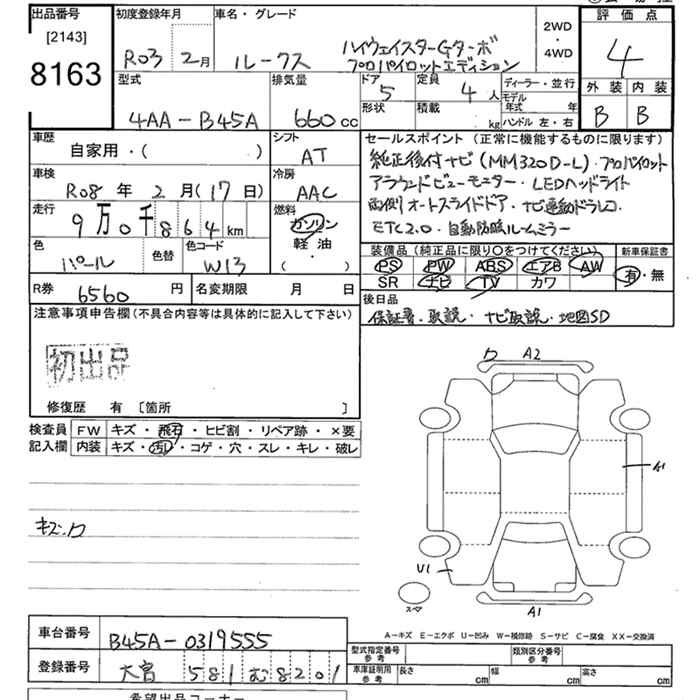 出品番号
[2143]
8163
初度登録年月
R03 2月
車名・グレード
ルークス
ハイウェイスターGターボ
プロパイロットエディション
2WD
・
4WD
評価点
4
外装 内装
B B
型式
4AA-B45A
排気量
660cc
ドア
5
定員
4人
形状
積載
kg
ディーラー・並行
モデル年式 年
ハンドル 左・右
車歴
自家用・( )
シフト
AT
車検
R08年2月(17日)
冷房
AAC
走行
9万0千864km
燃料
ガソリン
軽油
・
( )
色
パール
色替
色コード
W13
R券
6560円
名変期限 月 日
セールスポイント(正常に機能するものに限ります)
純正後付ナビ(MM320D-L)・プロパイロット
アラウンドビューモニター・LEDヘッドライト
両側オートスライドドア・ナビ連動ドラレコ
ETC2.0・自動防眩ルームミラー
装備品(純正品に限り○をつけてください)
PS PW ABS エアB AW
SR ナビ TV カワ
新車保証書
有・無
後日品
保証書・取説・ナビ取説・地図SD
注意事項申告欄(不具合内容等は具体的に記入して下さい)
初出品
修復歴 有 [箇所 ]
検査員
記入欄
FW キズ・飛石・ヒビ割・リペア跡・×要
内装 キズ・汚レ・コゲ・穴・スレ・キレ・破レ
キズ・ワ
ワ A2
A1
U1
スマ
A1
A-キズ E-エクボ U-凹み W-補修跡 S-サビ C-腐食 XX-交換済
車台番号
B45A-0319555
登録番号
大宮 581 む 8201
型式指定番号
参考
類別区分番号
参考
車庫証明用
参考
長さ cm 幅 cm 高さ cm
希望出品コーナー